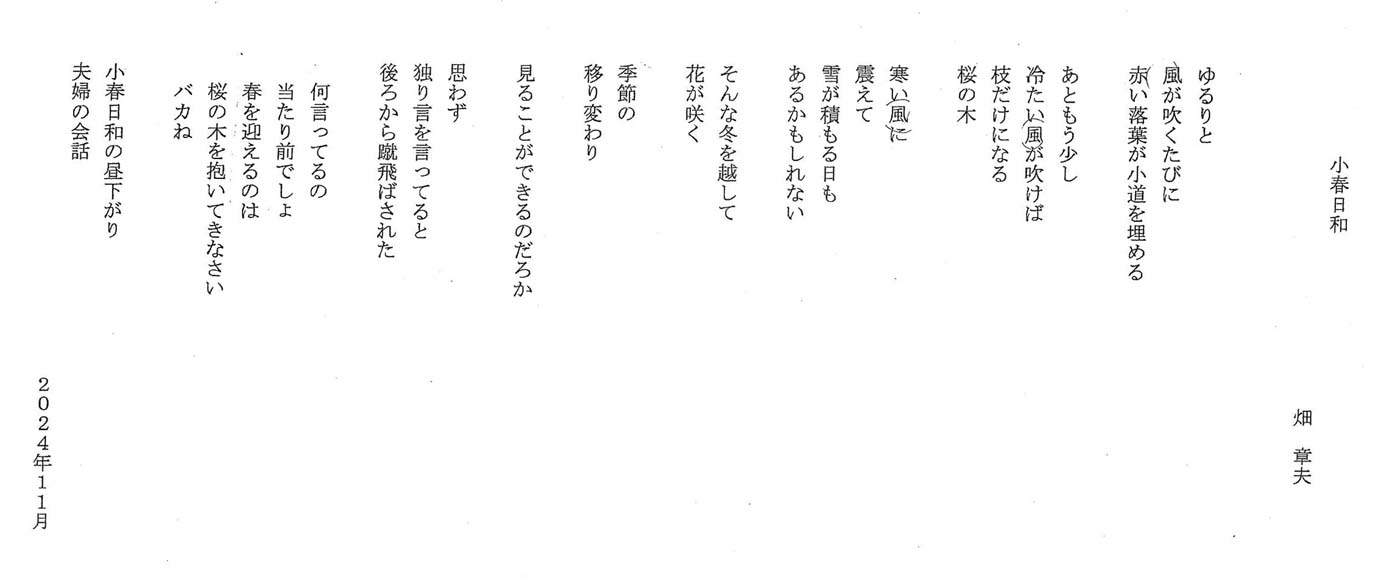 小春日和
畑　章夫
ゆるりと
風が吹くたびに
赤い落葉が小道を埋める
あともう少し
冷たい風が吹けば
枝だけになる
桜の木
寒い風に
震えて
雪が積もる日も
あるかもしれない
そんな冬を越して
花が咲く
季節の
移り変わり
見ることができるのだろか
思わず
独り言を言ってると
後ろから蹴飛ばされた
何言ってるの
当たり前でしょ
春を迎えるのは
桜の木を抱いてきなさい
バカね
小春日和の昼下がり
夫婦の会話
２０２４年１１月